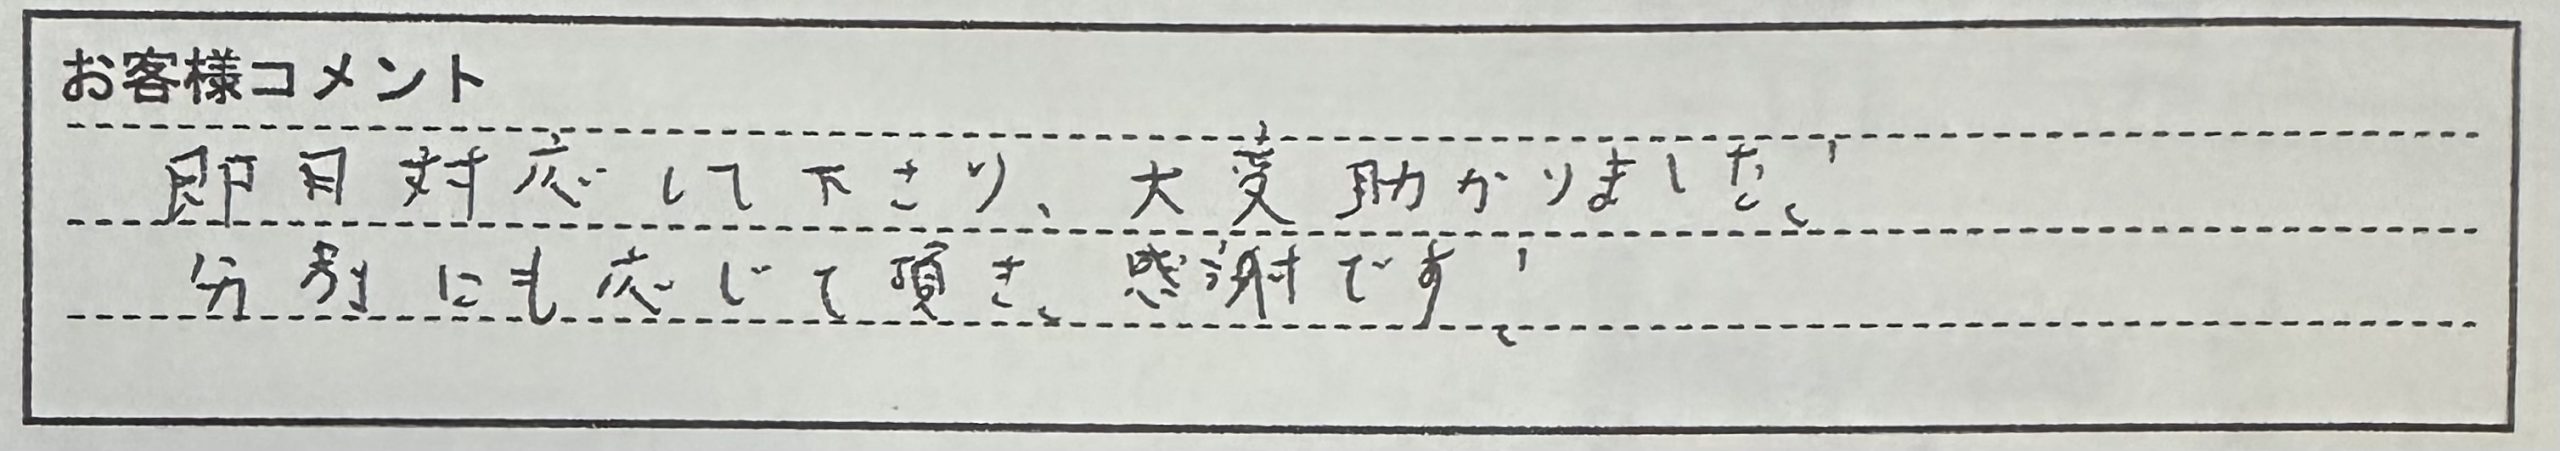 お客様コメント
即日対応して下さり、大変助かりました!
分別にも応じて頂き、感謝です!